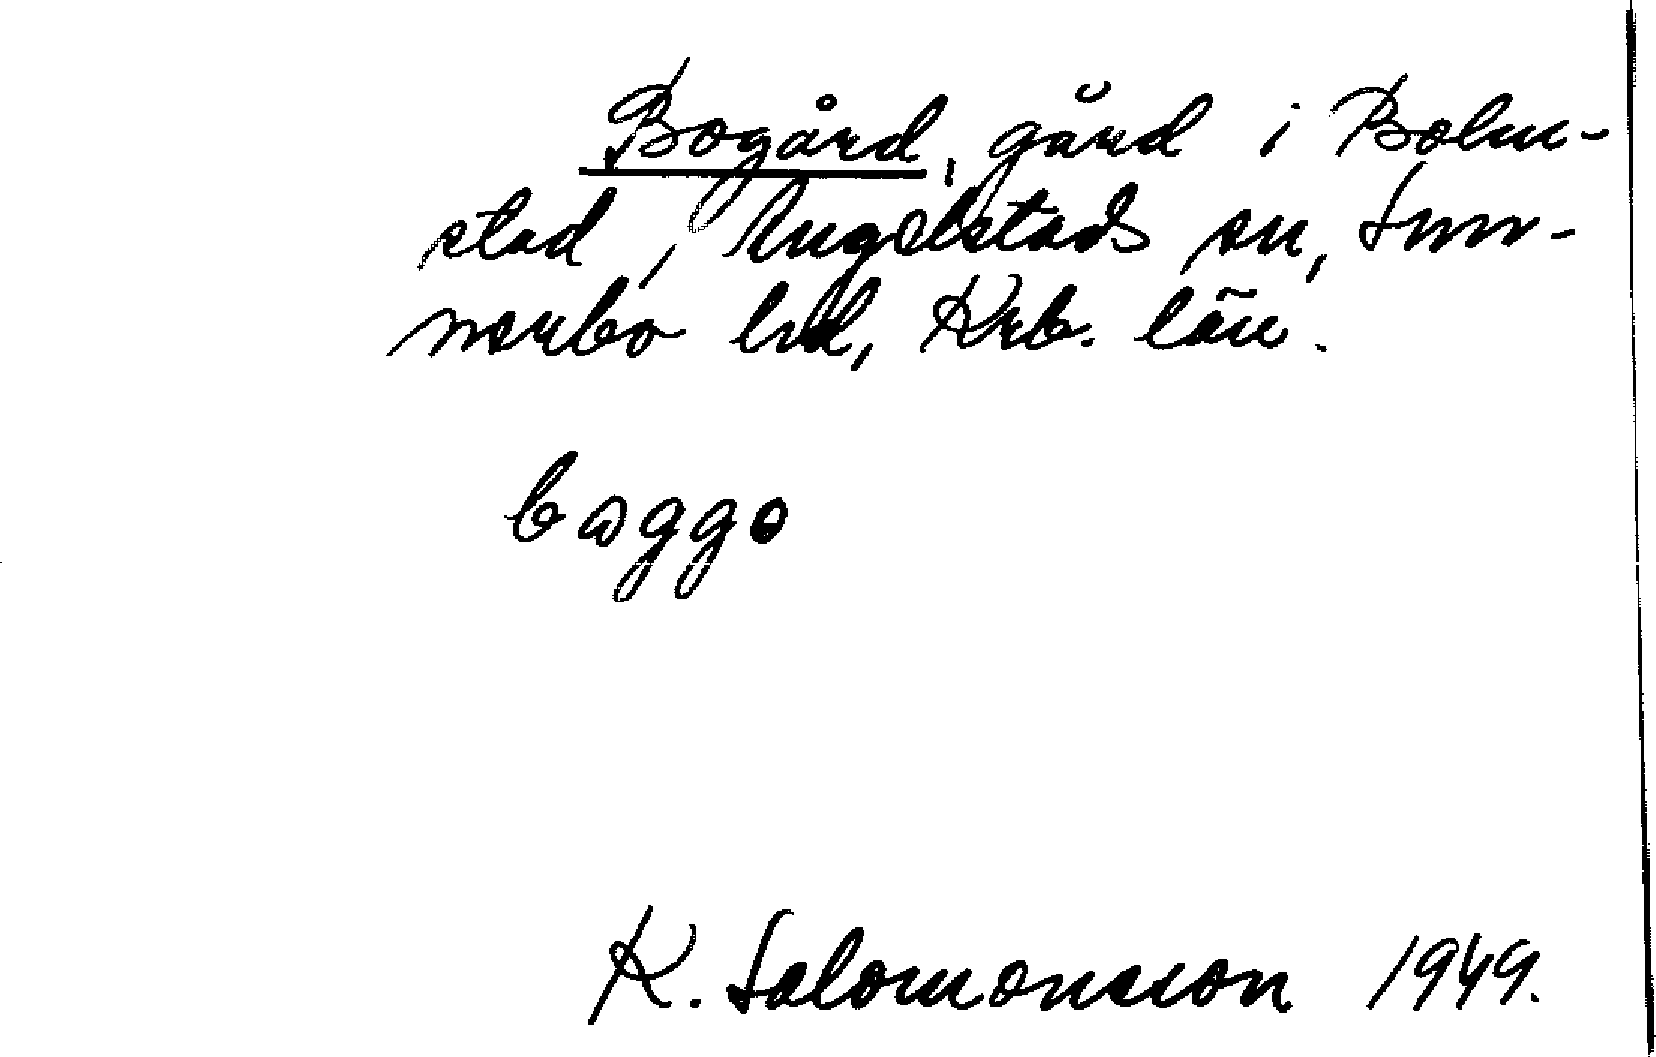 Bogård, gård i Bolm-
stad, Angelstads sn, Sun-
nerbo hd, Krb. län.
bɷggo
K. Salomonsson 1949.